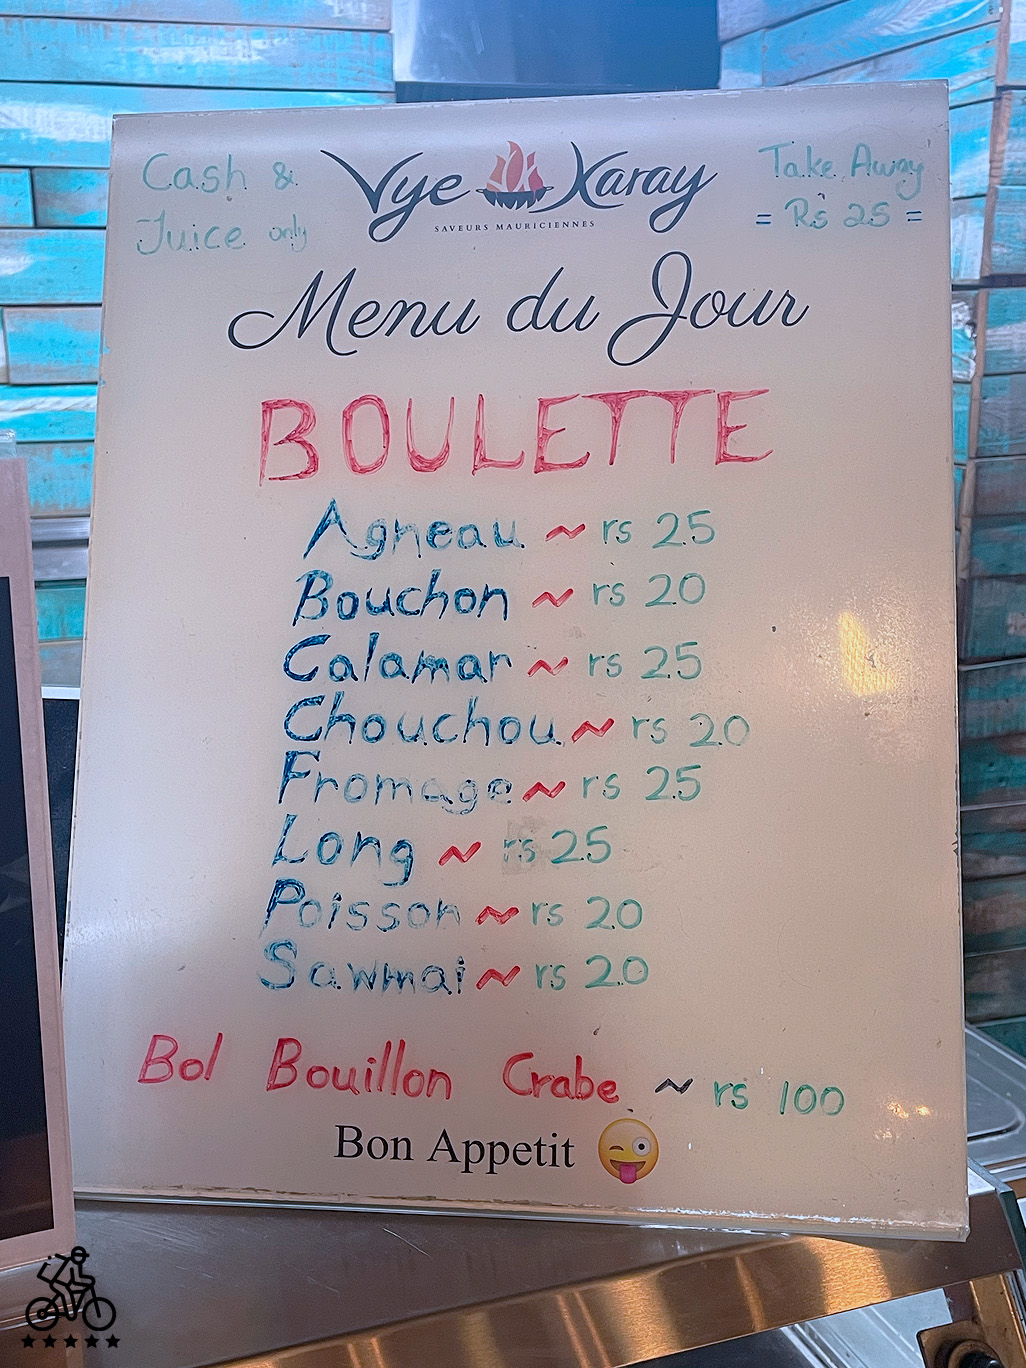 Cash &
Juice only
Vye Karay
SAVEURS MAURICIENNES
Take Away
= Rs 25 =
Menu du Jour
BOULETTE
Agneau ~ rs 25
Bouchon ~ rs 20
Calamar ~ rs 25
Chouchou ~ rs 20
Fromage ~ rs 25
Long ~ rs 25
Poisson ~ rs 20
Sawmai ~ rs 20
Bol Bouillon Crabe ~ rs 100
Bon Appetit 😜